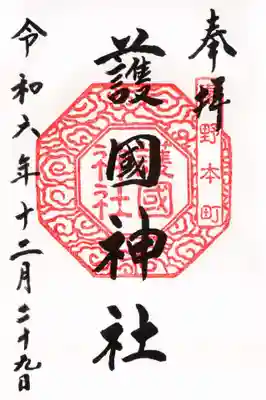 奉拝
野本町
護國神社
護國神社
令和六年十二月二十九日